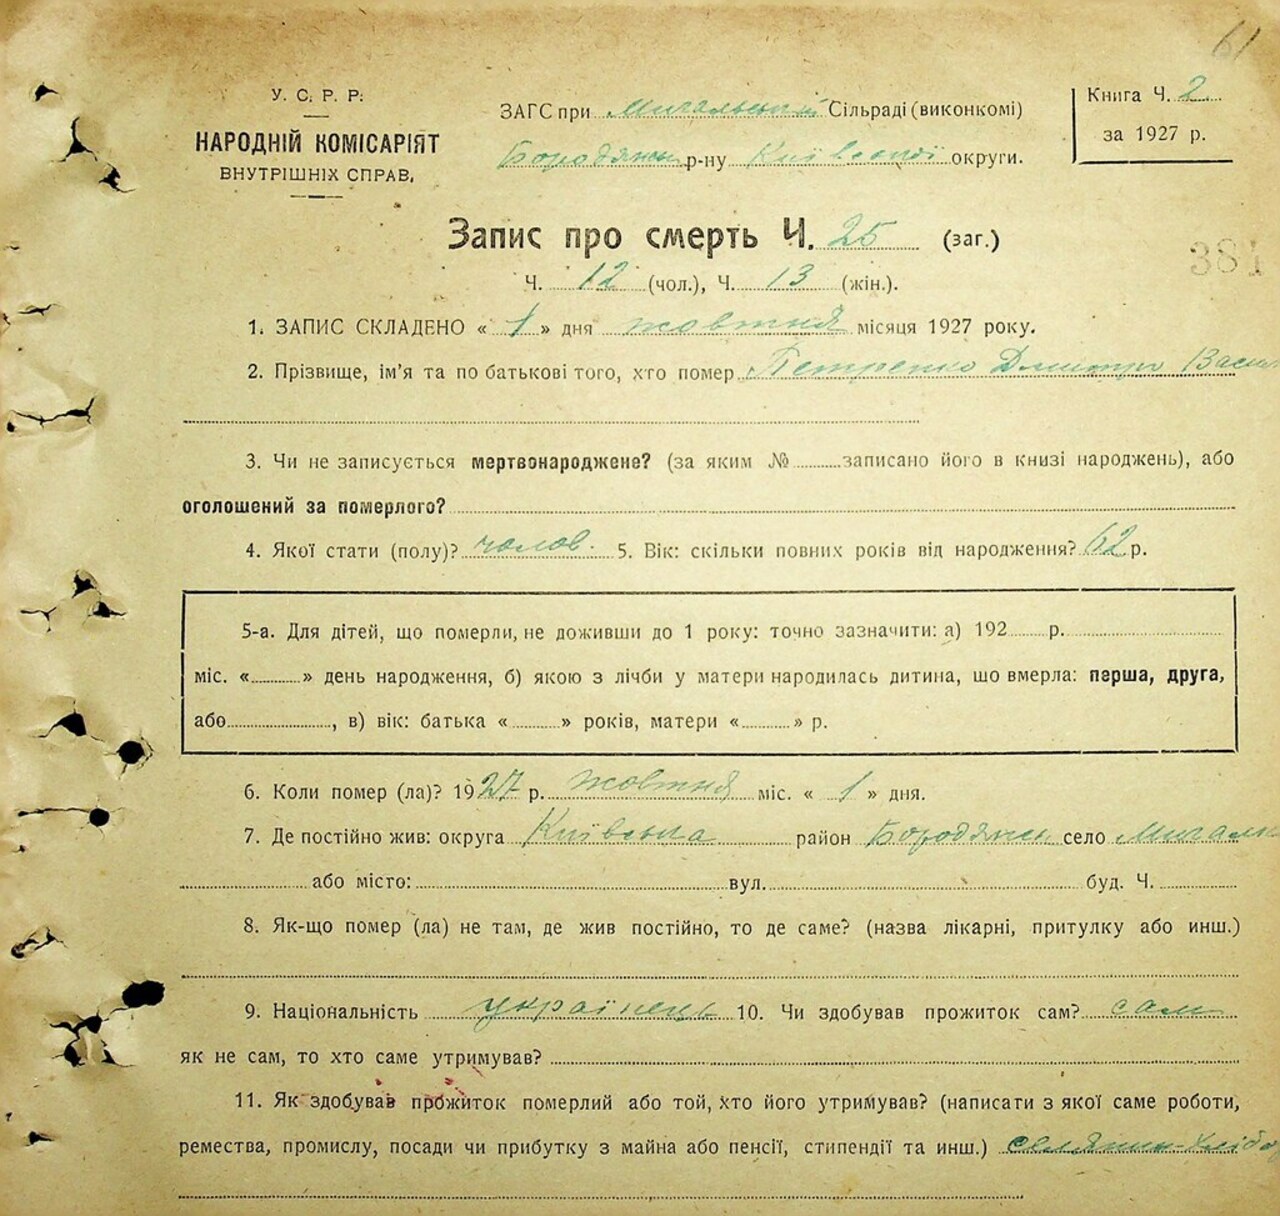 61
У. С. Р. Р.
НАРОДНІЙ КОМІСАРІЯТ
ВНУТРІШНІХ СПРАВ.
ЗАГС при Мигальський Сільраді (виконкомі)
Бородянськ р-ну Київської округи.
Книга Ч. 2
за 1927 р.
Запис про смерть Ч. 25 (заг.)
381
Ч. 12 (чол.), Ч. 13 (жін.).
1. ЗАПИС СКЛАДЕНО « 1 » дня жовтня місяця 1927 року.
2. Прізвище, ім'я та по батькові того, хто помер Петренко Дмитро Васил
3. Чи не записується мертвонароджене? (за яким № записано його в книзі народжень), або
оголошений за померлого?
4. Якої стати (полу)? чолов. 5. Вік: скільки повних років від народження? 62 р.
5-а. Для дітей, що померли, не доживши до 1 року: точно зазначити: а) 192 р.
міс. « » день народження, б) якою з лічби у матери народилась дитина, що вмерла: перша, друга,
або , в) вік: батька « » років, матери « » р.
6. Коли помер (ла)? 1927 р. жовтня міс. « 1 » дня.
7. Де постійно жив: округа Київська район Бородянськ село Мигалк
або місто: вул. буд. Ч.
8. Як-що помер (ла) не там, де жив постійно, то де саме? (назва лікарні, притулку або инш.)
9. Національність українець 10. Чи здобував прожиток сам? сам
як не сам, то хто саме утримував?
11. Як здобував прожиток померлий або той, хто його утримував? (написати з якої саме роботи,
ремества, промислу, посади чи прибутку з майна або пенсії, стипендії та инш.) селянин-хлібо